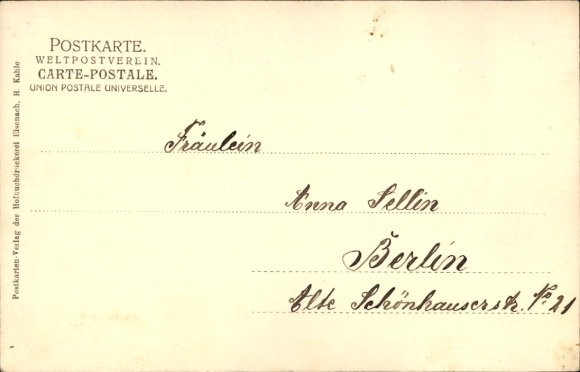 POSTKARTE.
WELTPOSTVEREIN.
CARTE-POSTALE.
UNION POSTALE UNIVERSELLE.
Fräulein
Anna Sellin
Berlin
Alte Schönhauserstr. No 21
Postkarten-Verlag der Hofbuchdruckerei Eisenach, H. Kahle